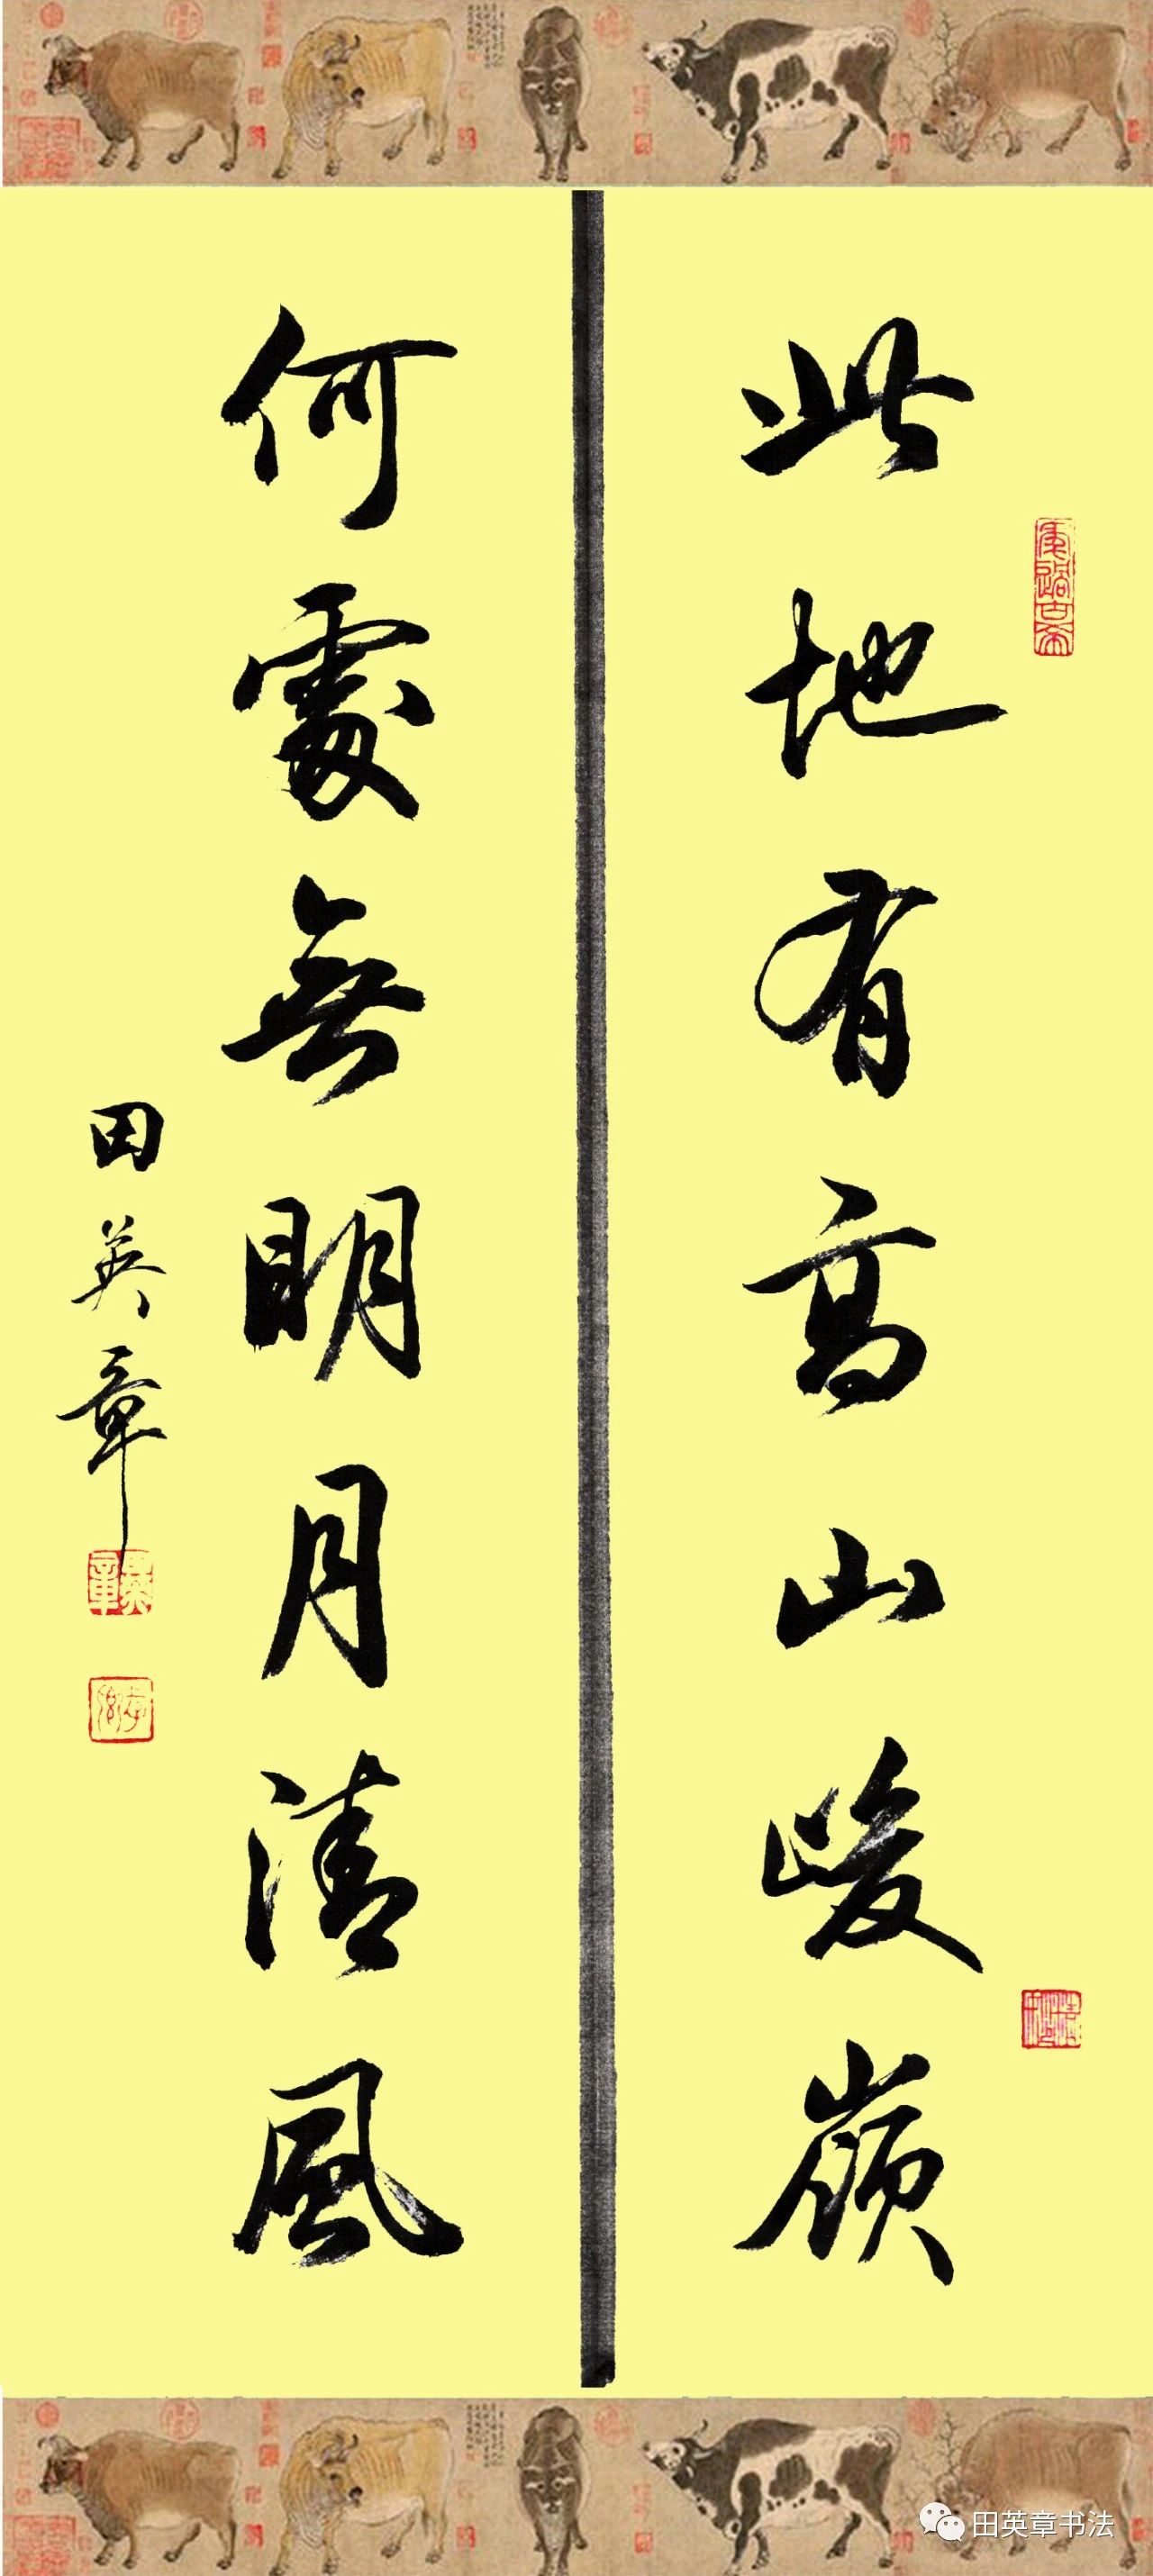 此地有高山峻嶺
何處無明月清風
田英章
田英章书法